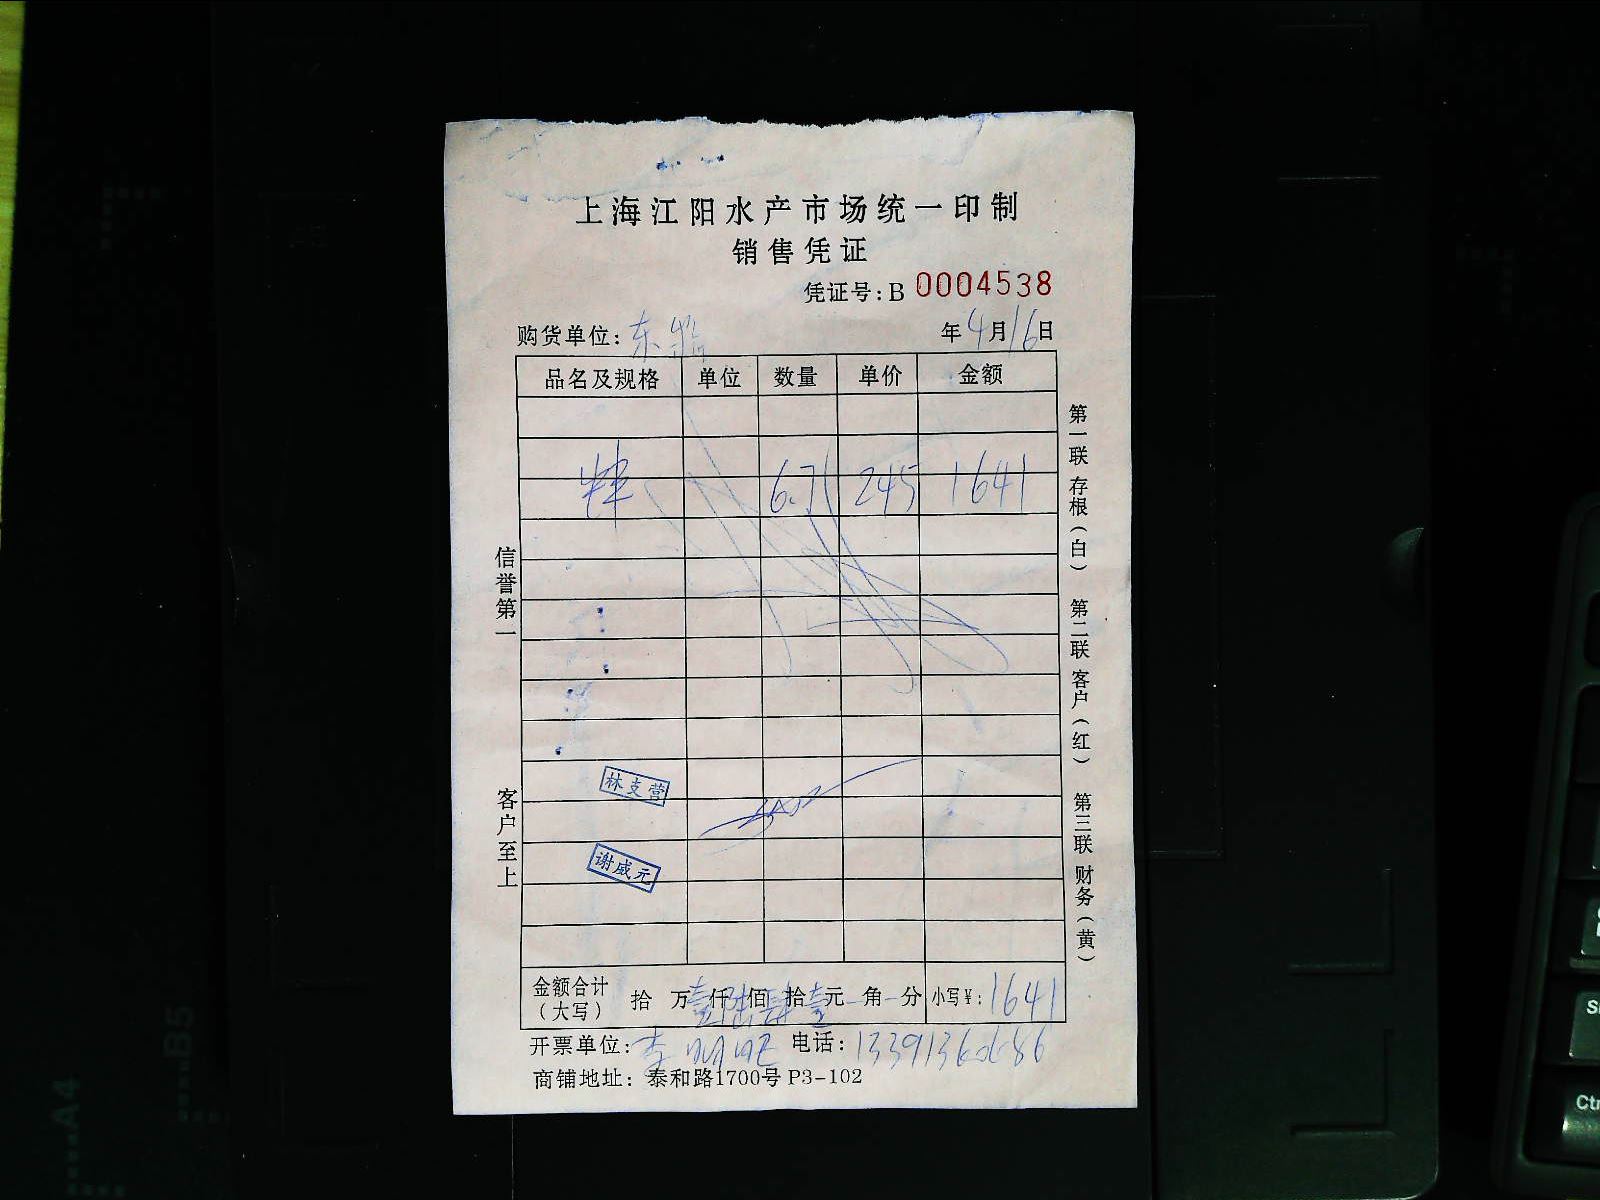 上海江阳水产市场统一印制
销售凭证
凭证号：B 0004538
购货单位：东 年4月16日
品名及规格 单位 数量 单价 金额
6.71 245 1641
林支营
谢威元
金额合计（大写） 拾 万壹仟陆佰肆拾壹元 角 分 小写¥：1641
开票单位：李明 电话：133913
商铺地址：泰和路1700号 P3-102
信誉第一
客户至上
第一联 存根（白）
第二联 客户（红）
第三联 财务（黄）
B5
A4
Ctr